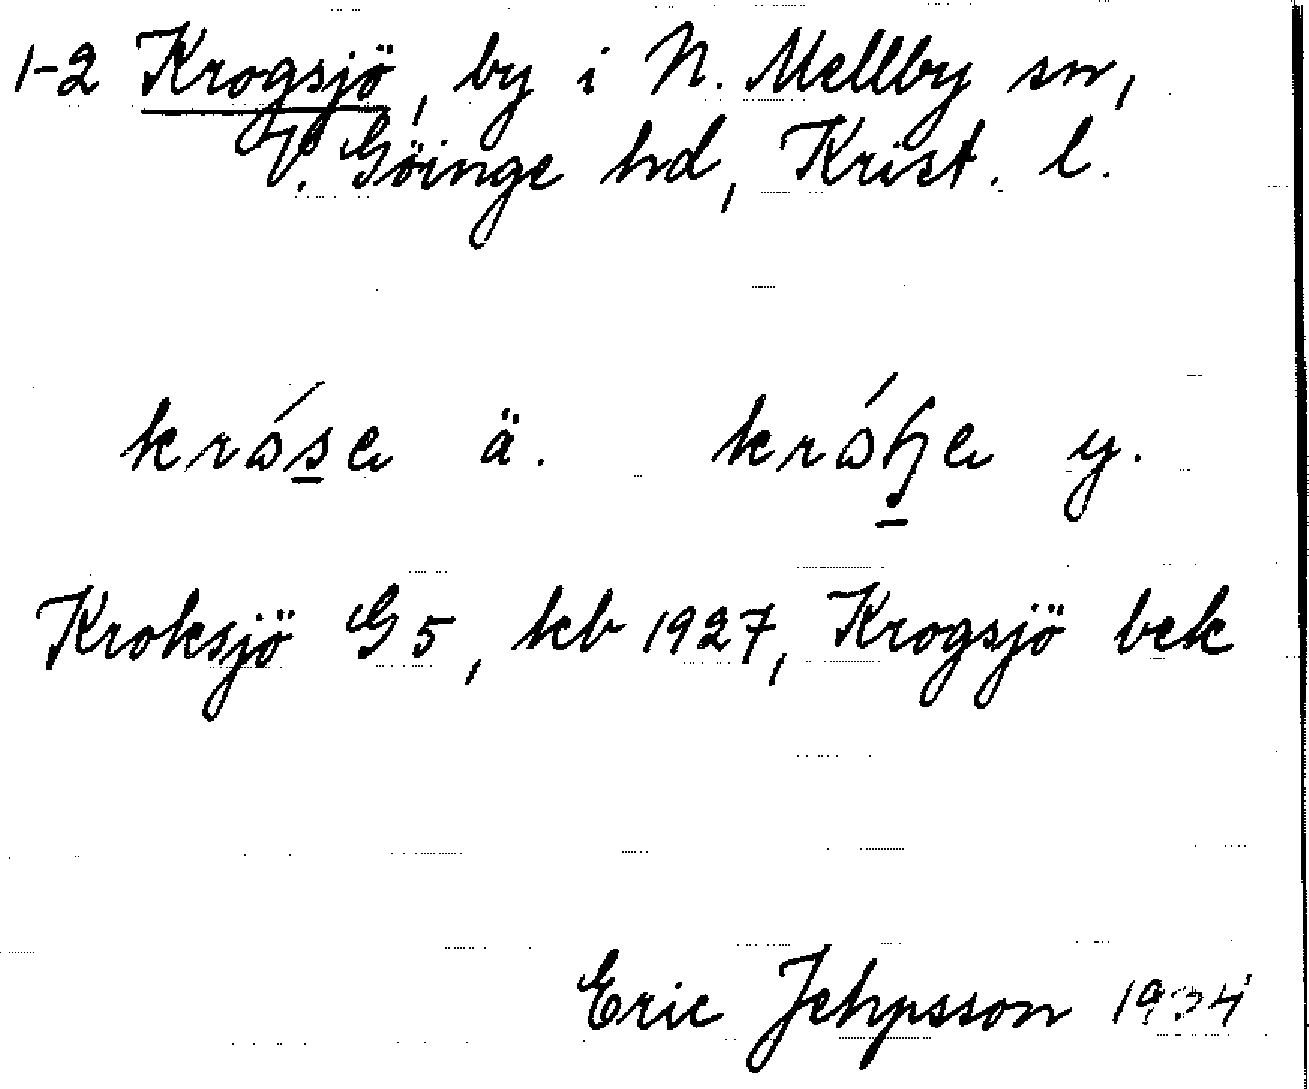 1-2 Krogsjö, by i N. Mellby sn,
V. Göinge hd, Krist. l.
kråse ä. kråɧe y.
Kroksjö G5, kb 1927, Krogsjö bek
Eric Jehpsson 1934